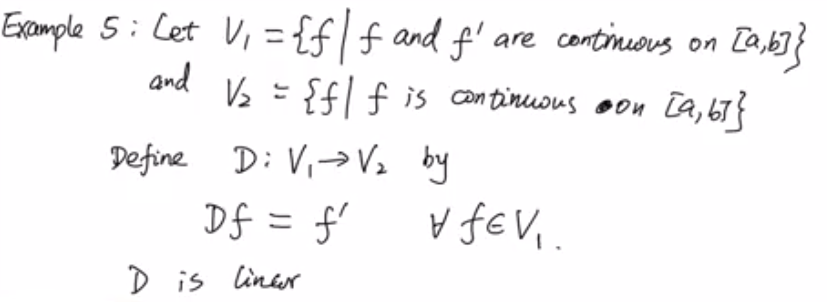 Example 5 : Let V₁ = {f | f and f' are continuous on [a,b]}
and V₂ = {f | f is continuous on [a,b]}
Define D: V₁ → V₂ by
Df = f' ∀ f ∈ V₁.
D is linear